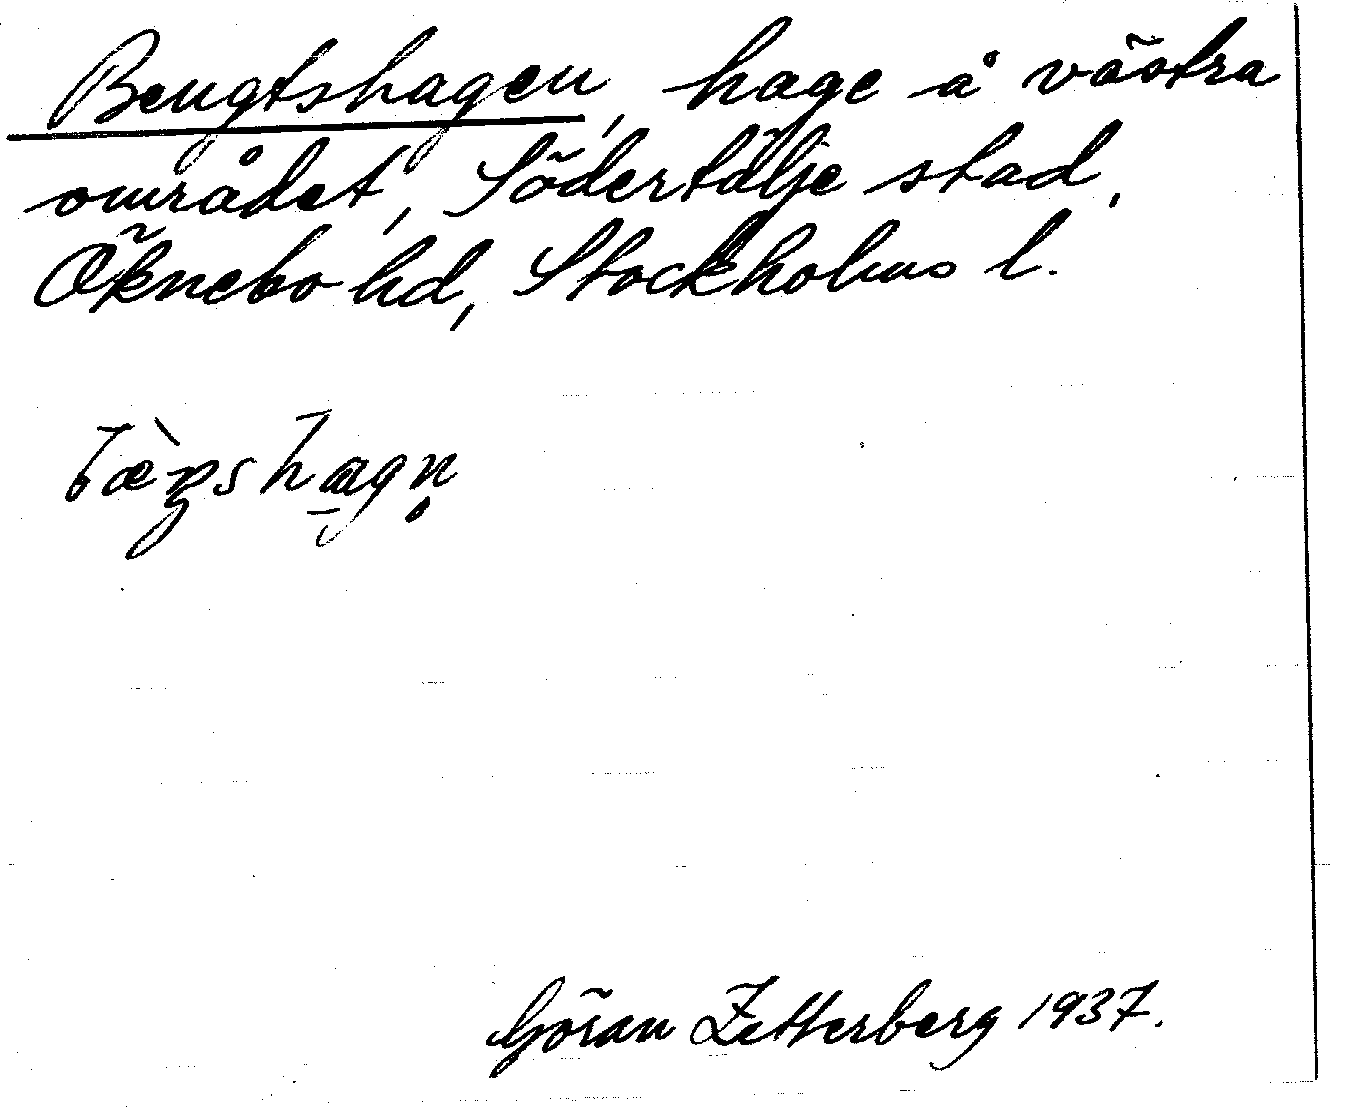 Bengtshagen, hage å västra
området, Södertälje stad,
Öknebo hd, Stockholms l.
bæ̀ŋshagn̥
Göran Zetterberg 1937.